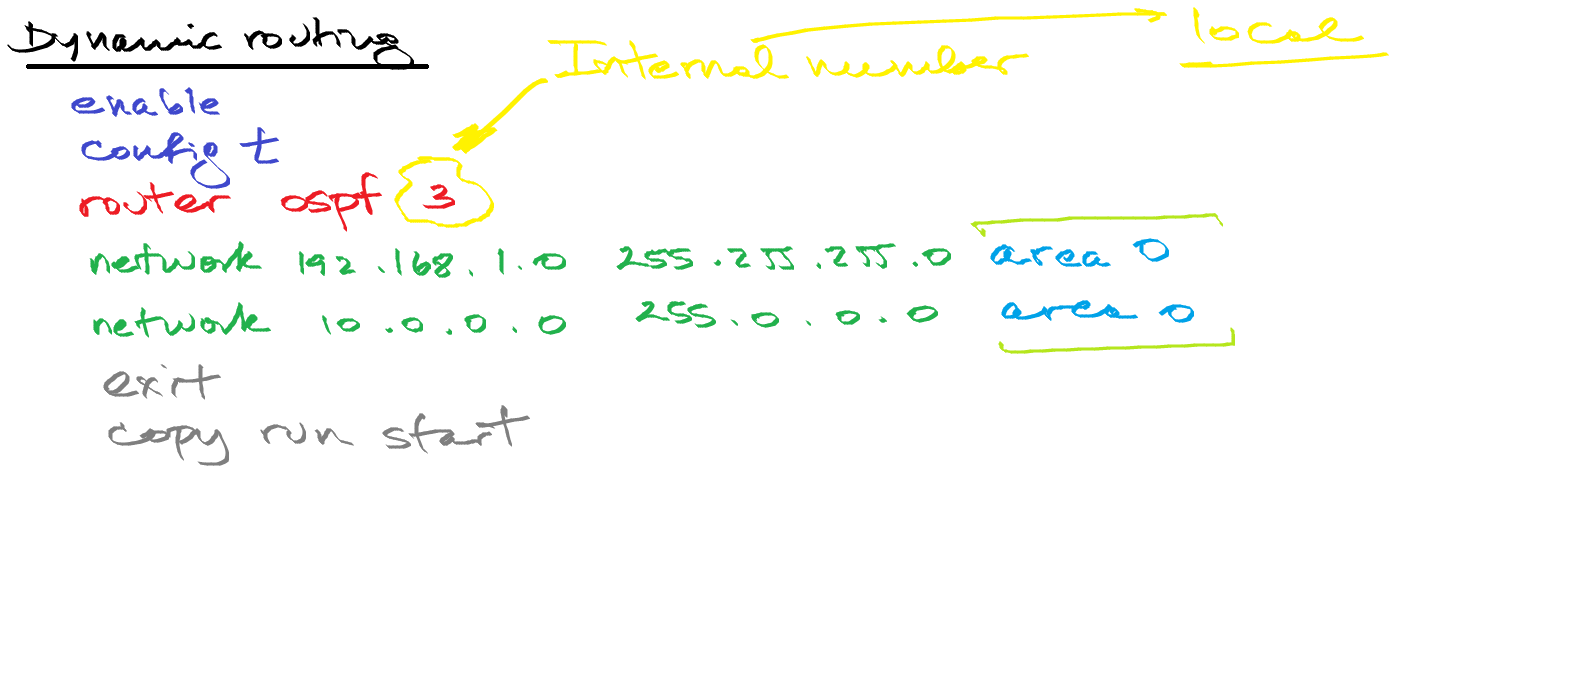 Dynamic routing
Internal number
local
enable
config t
router ospf 3
network 192.168.1.0 255.255.255.0 area 0
network 10.0.0.0 255.0.0.0 area 0
exit
copy run start